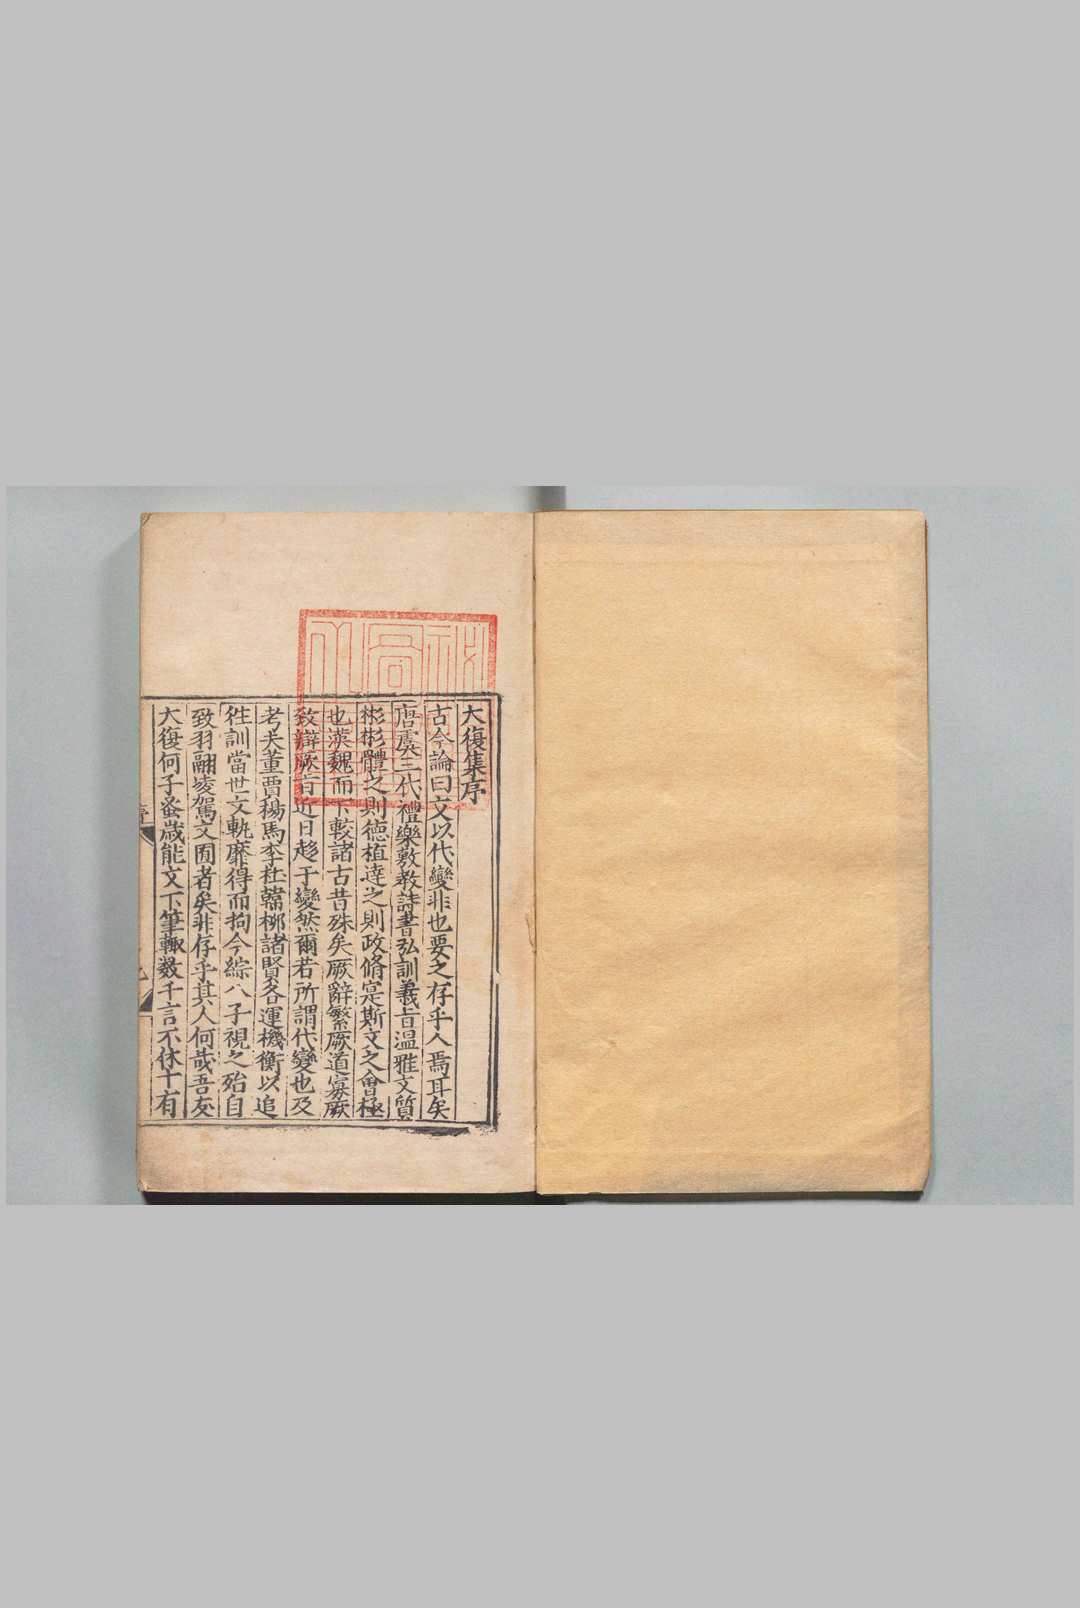 大復集序
古今論曰文以代變非也要之存乎人焉耳矣
唐虞三代禮樂敷教詩書弘訓義旨溫雅文質
彬彬體之則德植達之則政脩寔斯文之會極
也漢魏而下較諸古昔殊矣厥辭繁厥道寡厥
致辯厥旨近日趍于變然爾若所謂代變也及
考夫董賈楊馬李杜韓柳諸賢各運機衡以追
徃訓當世文軌靡得而拘今綜八子視之殆自
致羽翮堎駕文囿者矣非存乎其人何哉吾友
大復何子蚤歲能文下筆輙数千言不休十有